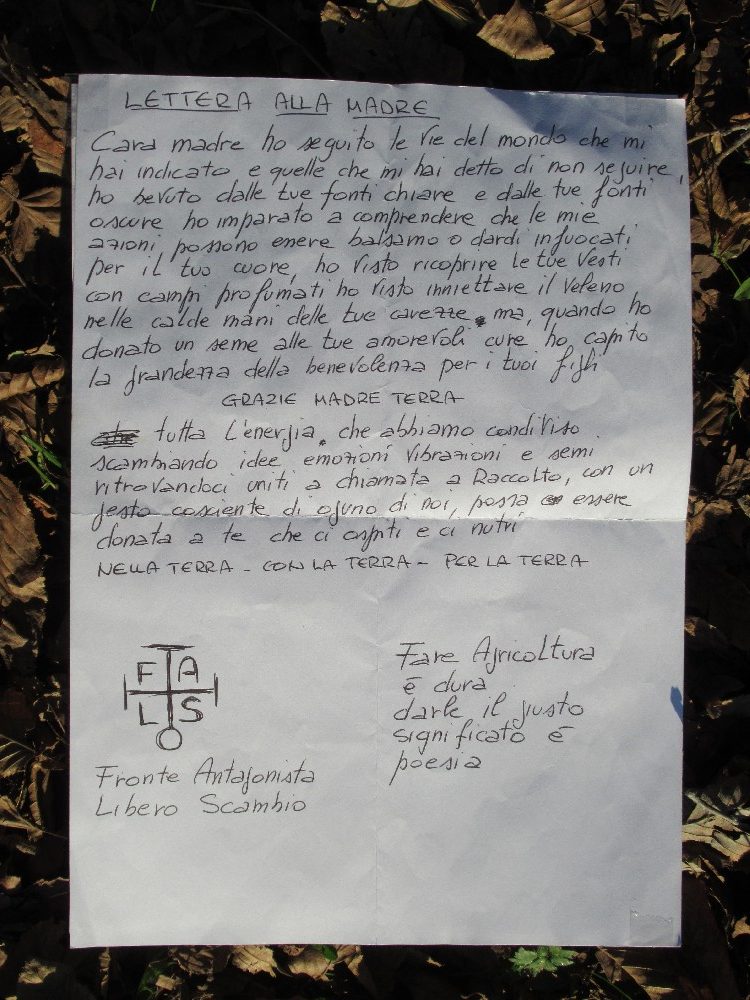 LETTERA ALLA MADRE
Cara madre ho seguito le vie del mondo che mi
hai indicato e quelle che mi hai detto di non seguire,
ho bevuto dalle tue fonti chiare e dalle tue fonti
oscure ho imparato a comprendere che le mie
azioni possono essere balsamo o dardi infuocati
per il tuo cuore, ho visto ricoprire le tue vesti
con campi profumati ho visto inniettare il veleno
nelle calde mani delle tue carezze, ma, quando ho
donato un seme alle tue amorevoli cure ho capito
la grandezza della benevolenza per i tuoi figli
GRAZIE MADRE TERRA
tutta l'energia, che abbiamo condiviso
scambiando idee emozioni vibrazioni e semi
ritrovandoci uniti a chiamata a Raccolto, con un
gesto cosciente di ognuno di noi, possa essere
donata a te che ci ospiti e ci nutri
NELLA TERRA - CON LA TERRA - PER LA TERRA
F A
L S
Fronte Antagonista
Libero Scambio
Fare Agricoltura
é dura
darle il giusto
significato é
poesia